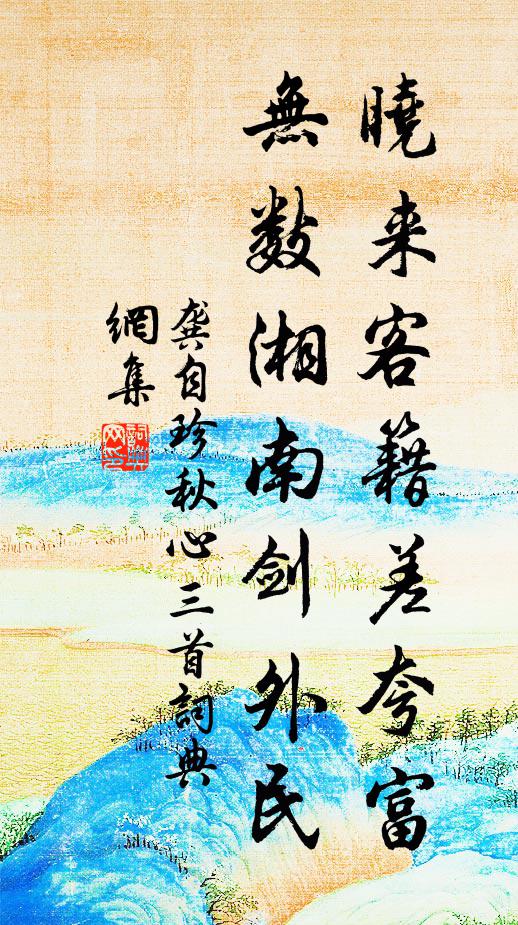 曉来客籍差夸富
無数湘南剑外民
龚自珍秋心三首詞典
網集